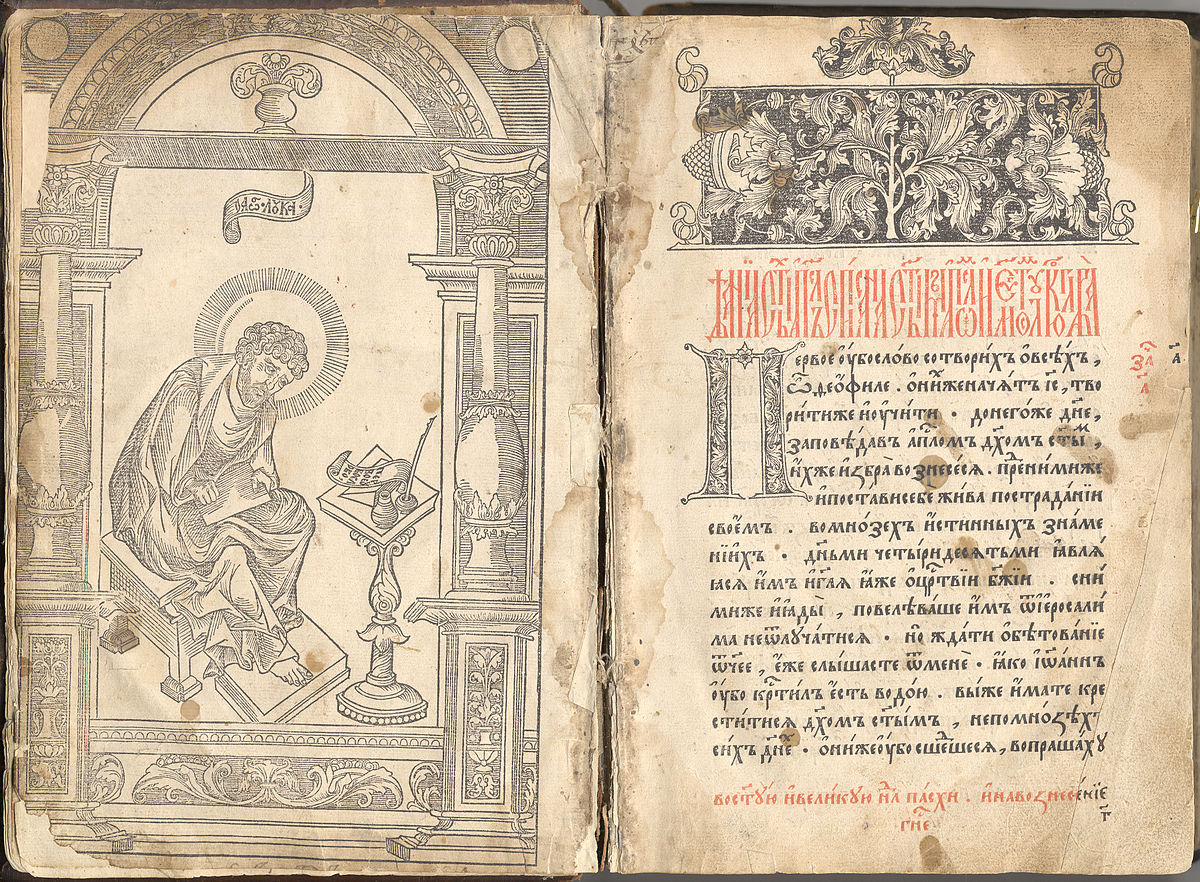 лꙋка
ервое ᲂу҆бо сло́во сотвори́хъ ѡ҆ всѣ́хъ,
ѽ ѳео́филе . ѡ҆ ни́хже нача́тъ і҆с҃, тво
ри́ти же и҆ ᲂу҆чи́ти · до него́же дн҃е,
заповѣ́дав а҆пⷭ҇лом дх҃ом ст҃ыⷨ ,
и҆́хже и҆збра̀ вознесе́сѧ . пре́ ни́ми же
и҆ поста́ви себе жи́ва по страда́нїи
свое́мъ . во мно́зехъ и҆́стинныхъ зна́ме
нїихъ · дн҃ьми четы́ридесѧтьми ꙗ҆влѧ́
ꙗсѧ и҆́мъ и҆ гл҃ѧ ꙗ҆́же ѡ҆ црⷭ҇твїи бж҃їи . с ни́
ми же и҆ ꙗ҆ды̀ , повелѣва́ше и҆́мъ ѿ і҆еросали́
ма не ѿлꙋча́тисѧ · но̀ жда́ти ѡ҆бѣтова́нїе
ѿчее , е҆́же слы́шасте ѿ менѐ · ꙗ҆́ко і҆ѡа́ннъ
ᲂу҆́бо крⷭ҇тил є҆́сть водо́ю . вы́ же и҆́мате кре
сти́тисѧ дх҃ом ст҃ы́мъ , не по мно́зѣхъ
си́хъ дн҃е · ѡ҆ни́ же ᲂу҆́бо сше́дшесѧ, вопраша́хꙋ
во ст҃ꙋ́ю и҆ вели́кꙋю нⷣлю па́схи . и҆ на вознесе́нїе
гн҃е